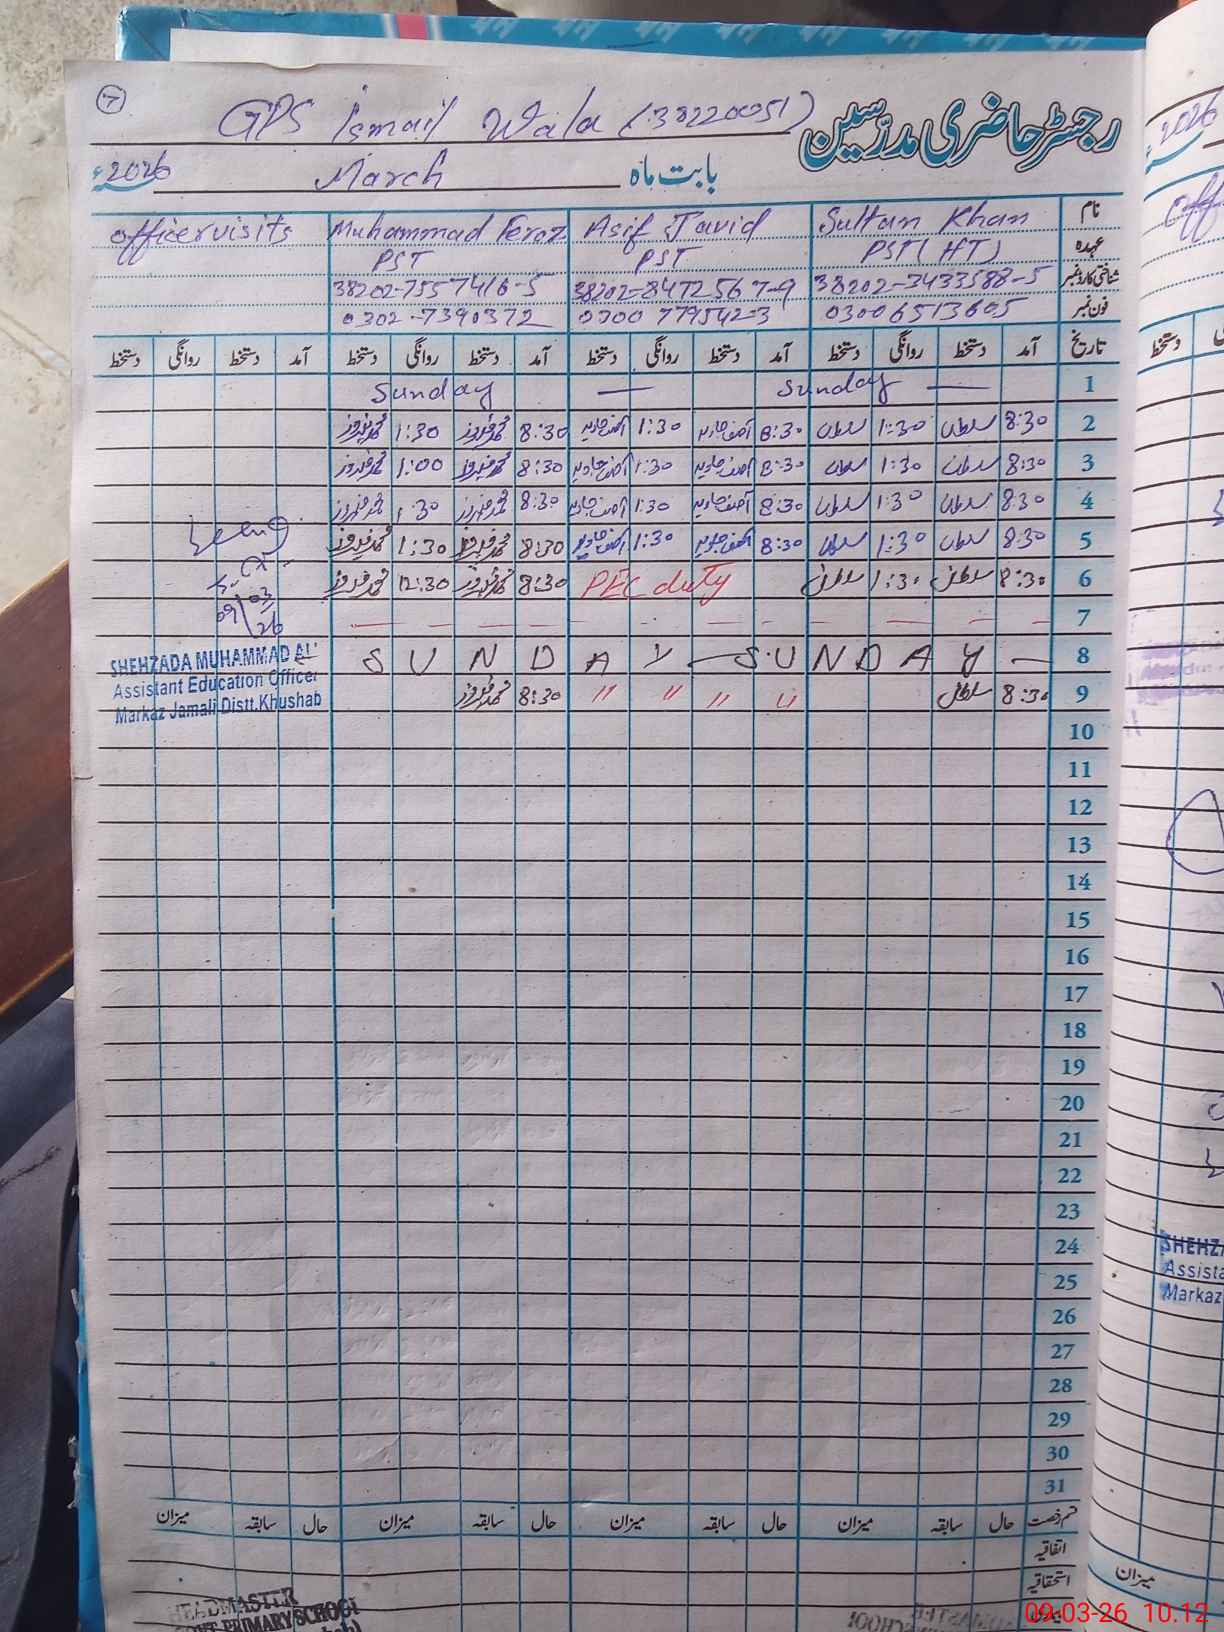 7
GPS Ismail Wala (38220051)
رجسٹر حاضری مدرّسین
2026ء March بابت ماہ
officer visits Muhammad Feroz Asif Javid Sultan Khan نام
PST PST PST (HT) عہدہ
38202-7557416-5 38202-8472567-9 38202-3433588-5 شناختی کارڈ نمبر
0302-7390372 0300 7795423 03006513605 فون نمبر
دستخط روانگی دستخط آمد دستخط روانگی دستخط آمد دستخط روانگی دستخط آمد دستخط روانگی دستخط آمد تاریخ
Sunday — Sunday — 1
محمد فیروز 1:30 محمد فیروز 8:30 آصف جاوید 1:30 آصف جاوید 8:30 سلطان 1:30 سلطان 8:30 2
محمد فیروز 1:00 محمد فیروز 8:30 آصف جاوید 1:30 آصف جاوید 8:30 سلطان 1:30 سلطان 8:30 3
محمد فیروز 1:30 محمد فیروز 8:30 آصف جاوید 1:30 آصف جاوید 8:30 سلطان 1:30 سلطان 8:30 4
محمد فیروز 1:30 محمد فیروز 8:30 آصف جاوید 1:30 آصف جاوید 8:30 سلطان 1:30 سلطان 8:30 5
محمد فیروز 12:30 محمد فیروز 8:30 PEC duty سلطان 1:30 سلطان 8:30 6
7
SUNDAY — SUNDAY — 8
محمد فیروز 8:30 " " " " سلطان 8:30 9
09/03/26
SHEHZADA MUHAMMAD ALI
Assistant Education Officer
Markaz Jamali Distt.Khushab
10
11
12
13
14
15
16
17
18
19
20
21
22
23
24
25
26
27
28
29
30
31
میزان سابقہ حال میزان سابقہ حال میزان سابقہ حال میزان سابقہ حال قسم رخصت
اتفاقیہ
استحقاقیہ
HEADMASTER
GOVT PRIMARY SCHOOL
2026
دستخط
SHEHZA
Assista
Markaz
میزان
09-03-26 10.12